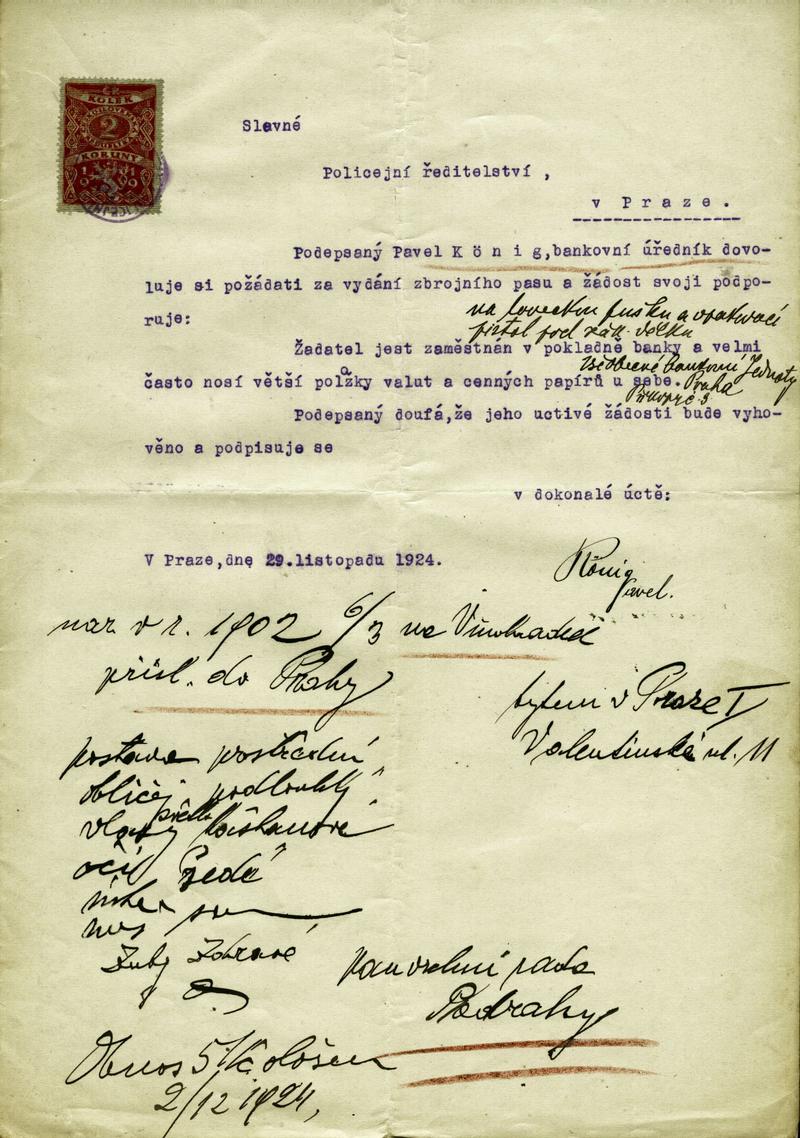 KOLEK
2
KORUNY
Slavné
Policejní ředitelství ,
v Praze.
Podepsaný Pavel König,bankovní úředník dovo-
luje si požádati za vydání zbrojního pasu a žádost svoji podpo-
ruje:
na loveckou pušku a opakovací
pistol pod zák. délku
Žadatel jest zaměstnán v pokladně banky a velmi
Všeobecné bankovní Jednoty
často nosí větší položky valut a cenných papírů u sebe. Praha
Podepsaný doufá,že jeho uctivé žádosti bude vyho-
věno a podpisuje se
v dokonalé úctě:
V Praze,dne 29.listopadu 1924.
König
Pavel.
nar v r. 1902 6/3 na Vinohradech
přísl. do Prahy
bytem v Praze I
Valentinská ul. 11
postava prostřední
obličej podlouhlý
vlasy světle kaštanové
oči šedé
ústa
nos
zuby zdravé
Obnos 5 Kč složen
2/12 1924,